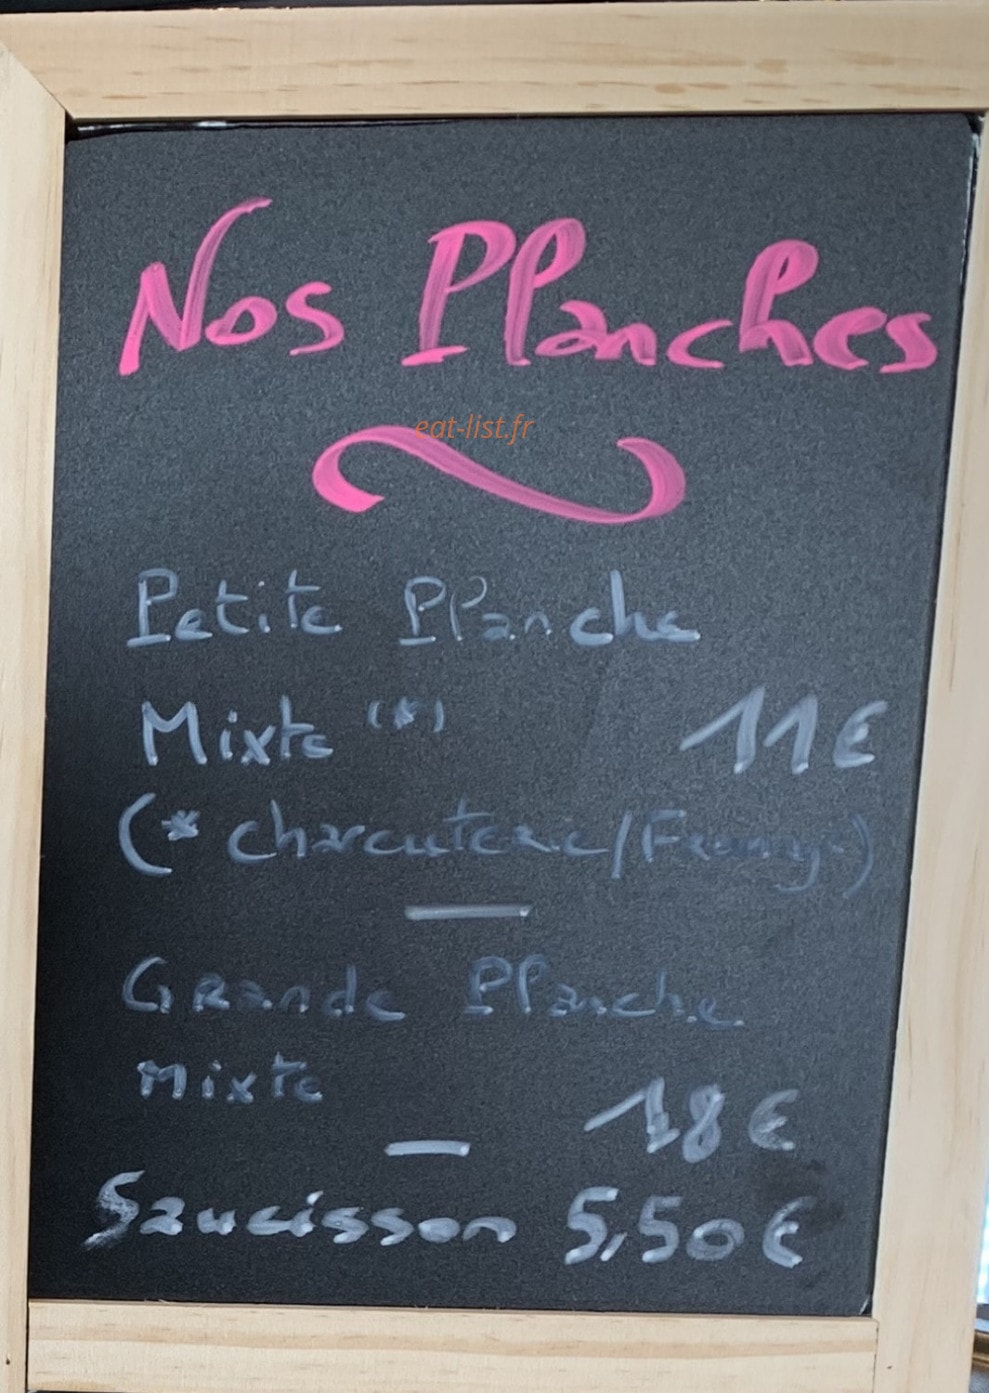 Nos Planches
eat-list.fr
Petite Planche
Mixte (*) 11€
(* charcuterie/Fromage)
Grande Planche
Mixte 18€
Saucisson 5,50€